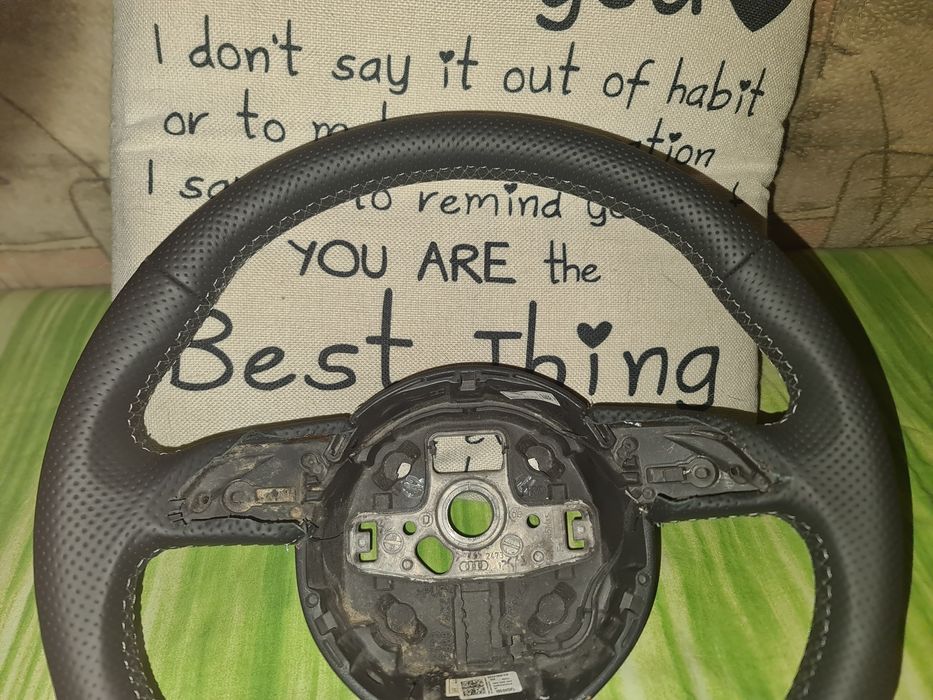 you
I don't say it out of habit
or to
I to remind
YOU ARE the
Best Thing
2473